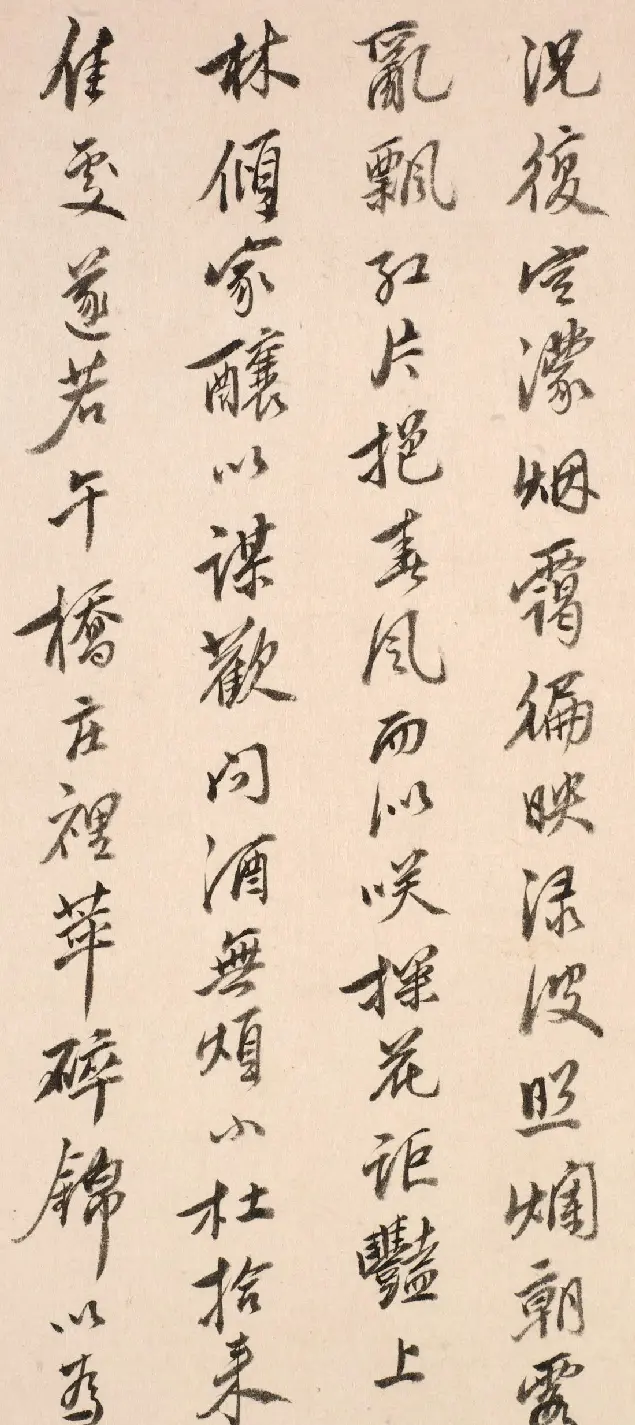 況復空濛烟靄徧映渌波照爛朝霞
亂飄紅片挹春風而似咲探花詎豔上
林傾家釀以謀歡問酒無煩小杜拾來
佳處遂若午橋庄裡華碎錦以爲